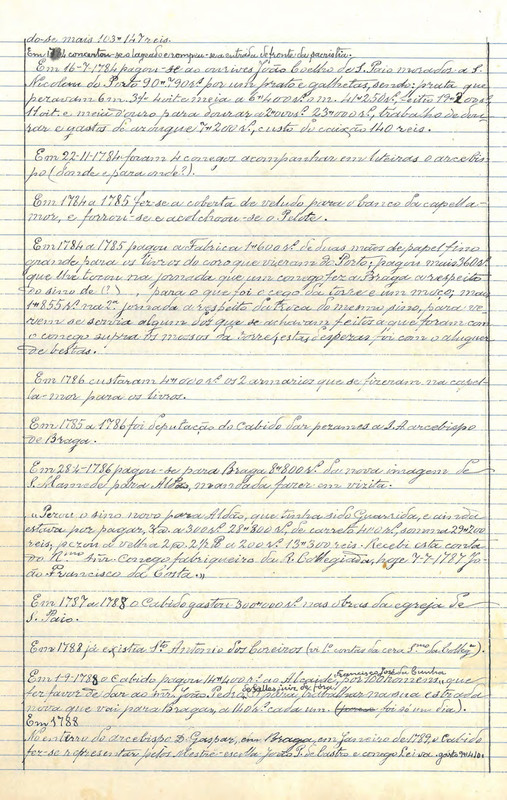 do-se mais 103#147 reis.
Em concertou-se o lageado e rompeu-se a entrada defronte da sacristia.
Em 16-7-1784 pagou-se ao ourives João Coelho de S. Paio morador a S.
Nicolau do Porto 90#90 rs. por um prato e galhetas, sendo: prata que
pezaram 6 m. 3 on. oit. e meia a 6#400 rs. o m. 41#250 rs., feitio 19-2
1 oit. e meia d'ouro para dourar a 2000 rs. 23#000 rs., trabalho de dou-
rar e gastos de azougue 7#200 rs., custo do caixão 140 reis.
Em 22-11-1784 foram 4 conegos acompanhar em liteiras o arcebis-
po (donde e para onde?).
Em 1784 a 1785 fez-se a coberta de veludo para o banco da capella-
mor, e forrou-se e acolchoou-se o
Em 1784 a 1785 pagou a Fabrica 1#600 rs. de duas mãos de papel fino
grande, para os livros do coro que vieram do Porto; pagou mais 3#610 rs.
que lhe tocou na jornada que um conego fez a Braga a respeito
do sino de (?) , para o que foi o cego da torre e um moço; mais
1#855 rs. na 2ª jornada a respeito da troca do mesmo sino, para ve-
rem se servia algum dos que se achavam feitos a que foram com
o conego supra os mossos da torre, estas despezas foi com o aluguer
de bestas.
Em 1786 custaram 4#000 rs. os 2 armarios que se fizeram na capel-
la-mor para os livros.
Em 1785 a 1786 foi deputação do Cabido dar pezames a S. A arcebispo
de Braga.
Em 28-4-1786 pagou-se para Braga 8#800 rs. da nova imagem de
S. Mamede para Aldão, mandada fazer em visita.
"Pezou o sino novo para Aldão, que tinha sido Guarrida, e ainda
estava por pagar, 3 @ a 300 rs. 28#800 rs., de carreto 400 rs., somma 29#200
reis, pezou a velha 2 @. 2 1/2 @ a 200 rs. 13#300 reis. Recebi esta conta
do R.mo Snr. Conego fabriqueiro da R. Collegiada, hoje 7-7-1787 Jo-
ão Francisco da Costa."
Em 1787 a 1788 o Cabido gastou 300#000 rs. nas obras da egreja de
S. Paio.
Em 1788 já existia Sto. Antonio dos Coreiros (vi lº contas da cera da Colleg.ª).
Em 1-9-1788 o Cabido pagou 14#400 rs. ao Alcaide, Francisco José da Cunha por 100 homens "que
por favor de dar ao snr. João Pedro" Salles, juiz de fóra, para trabalhar na sua estrada
nova que vai para Braga, a 140 rs. cada um. (foi só um dia).
Em 1788
No enterro do arcebispo D. Gaspar, em Braga, em janeiro de 1789, o Cabido
fez-se representar pelos Mestre-escola João P. de Castro e conego Leiva.